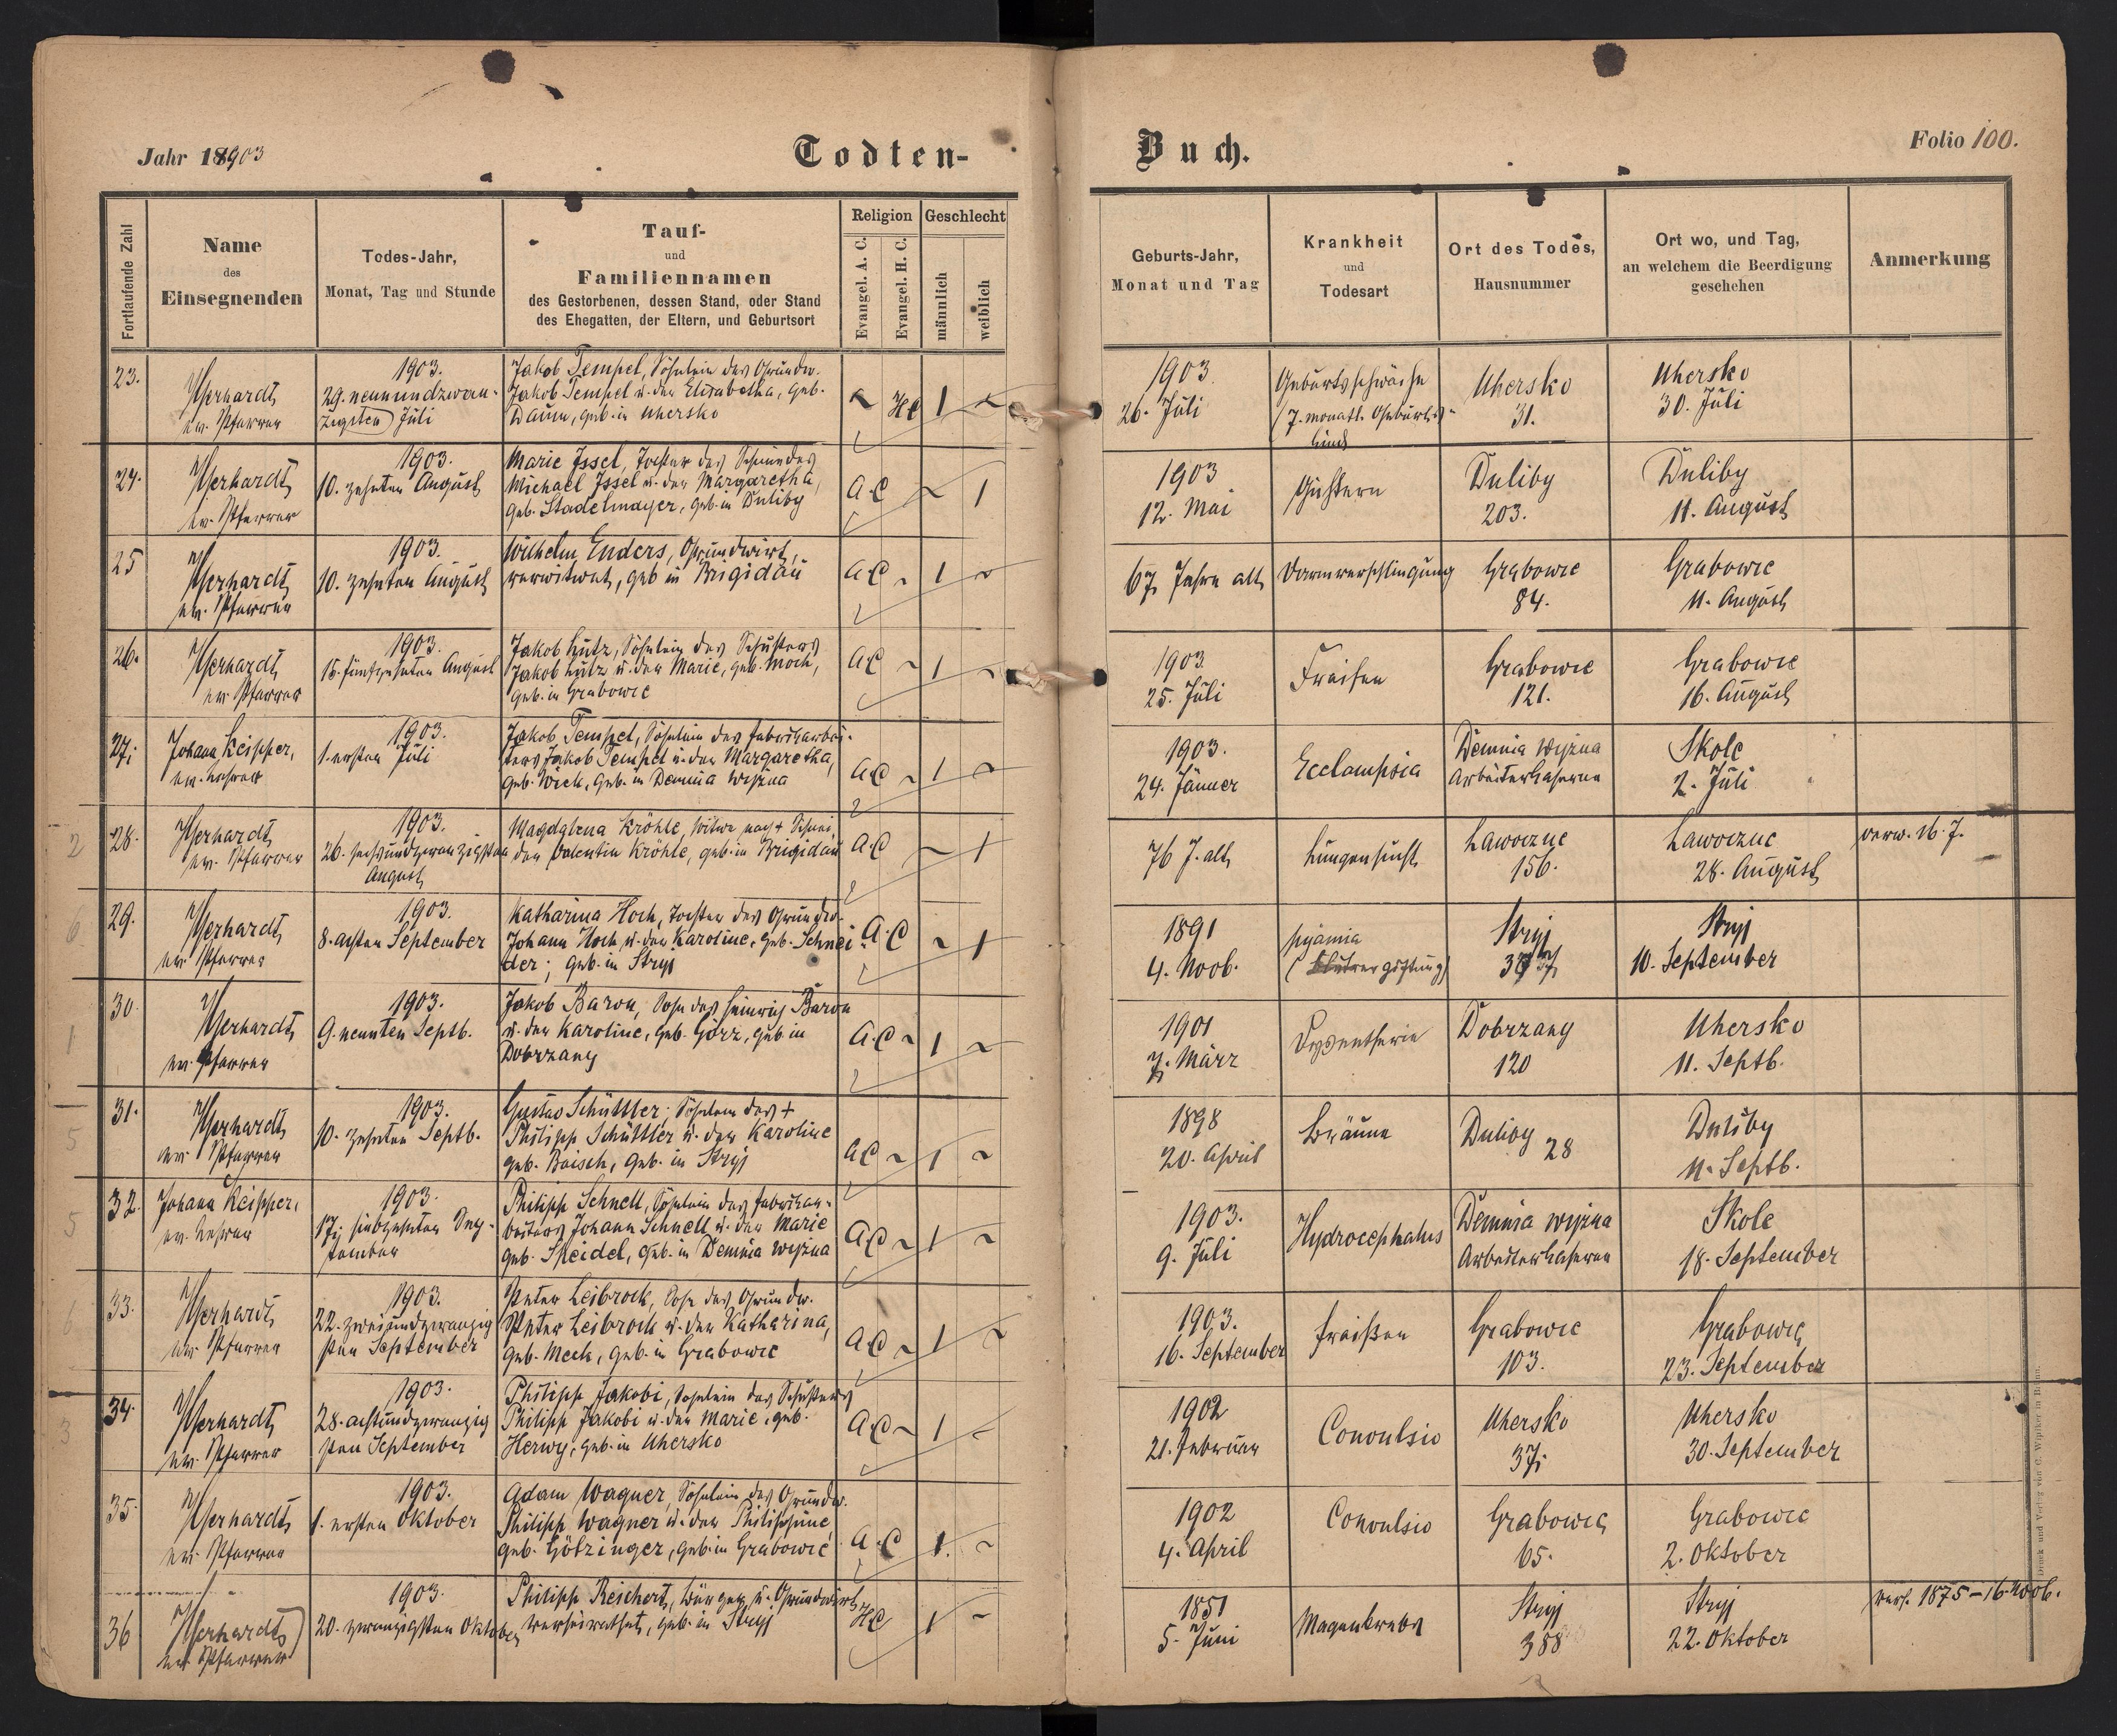 Jahr 18903
Todten-
Buch.
Folio 100.
Fortlaufende Zahl
Name
des
Einsegnenden
Todes-Jahr,
Monat, Tag und Stunde
Tauf-
und
Familiennamen
des Gestorbenen, dessen Stand, oder Stand
des Ehegatten, der Eltern, und Geburtsort
Religion
Evangel. A. C.
Evangel. H. C.
Geschlecht
männlich
weiblich
Geburts-Jahr,
Monat und Tag
Krankheit
und
Todesart
Ort des Todes,
Hausnummer
Ort wo, und Tag,
an welchem die Beerdigung
geschehen
Anmerkung
23.
ev. Pfarrer
1903.
29. neunundzwan-
zigsten Juli
Jakob Tempel, Söhnlein des Grundw.
Jakob Tempel u. der Elisabetha, geb.
Daum, geb. in Uhersko
HC
1
1903.
26. Juli
Geburtsschwäche
(7. monatl. Geburts-
kind
Uhersko
31.
Uhersko
30. Juli
24.
ev. Pfarrer
1903.
10. zehnten August
Marie Issel, Tochter des
Michael Issel u. der Margaretha,
geb. Stadelmayer, geb. in Duliby
A.C
1
1903
12. Mai
Duliby
203.
Duliby
11. August
25
ev. Pfarrer
1903.
10. zehnten August
Wilhelm Enders, Grundwirt,
verwitwet, geb in Brigidau
A.C
1
67 Jahre alt
Darmverschlingung
Grabowce
84.
Grabowce
11. August
26.
ev. Pfarrer
1903.
15. fünfzehnten August
Jakob Lutz, Söhnlein des Schusters
Jakob Lutz u. der Marie, geb. Moch,
geb. in Grabowce
A.C
1
1903
25. Juli
Fraisen
Grabowce
121.
Grabowce
16. August
27.
Johann Keipper,
ev. Lehrer
1903.
1. ersten Juli
Jakob Tempel, Söhnlein des Fabriksarbei-
ters Jakob Tempel u. der Margaretha,
geb. Wick, geb. in Demnia wyżna
A.C
1
1903.
24. Jänner
Ecclampsia
Demnia wyżna
Arbeiterkaserne
Skole
2. Juli
28.
ev. Pfarrer
1903.
26. sechsundzwanzigsten
August
Magdalena Kröhle, Witwe nach + Schnei
der Valentin Kröhle, geb. in Brigidau
A.C
1
76 J. alt
Lungensucht
Lawoczne
156.
Lawoczne
28. August
verw. 16. J.
29.
ev. Pfarrer
1903.
8. achten September
Katharina Hoch, Tochter des Grundw.
Johann Hoch u. der Karoline, geb. Schnei
der; geb. in Stryj
A.C
1
1891
4. Novb.
pyämia
(Blutvergiftung)
Stryj
Stryj
10. September
30.
ev. Pfarrer
1903.
9. neunten Septb.
Jakob Baron, Sohn des Heinrich Baron
u. der Karoline, geb. Görz, geb. in
Dobrzany
A.C
1
1901
7. März
Dysentherie
Dobrzany
120
Uhersko
11. Septb.
31.
ev. Pfarrer
1903.
10. zehnten Septb.
Gustav Schüttler, Söhnlein des +
Philipp Schüttler u. der Karoline
geb. Boisch, geb. in Stryj
A.C
1
1898
20. April
Bräune
Duliby 28
Duliby
11. Septb.
32.
Johann Keipper,
ev. Lehrer
1903.
17. siebzehnten Sep-
tember
Philipp Schnell, Söhnlein des Fabriksar-
beiters Johann Schnell u. der Marie
geb. Speidel, geb. in Demnia wyżna
A.C
1
1903.
9. Juli
Hydrocephalus
Demnia wyżna
Arbeiterkaserne
Skole
18. September
33.
ev. Pfarrer
1903.
22. zweiundzwanzig
sten September
Peter Leibrock, Sohn des Grundw.
Peter Leibrock u. der Katharina,
geb. Meck, geb. in Grabowce
A.C
1
1903.
16. September
Fraißen
Grabowce
103.
Grabowce
23. September
34.
ev. Pfarrer
1903.
28. achtundzwanzig
sten September
Philipp Jakobi, Söhnlein des Schusters
Philipp Jakobi u. der Marie, geb.
Herwy, geb. in Uhersko
A.C
1
1902
21. Februar
Convulsio
Uhersko
37.
Uhersko
30. September
35.
ev. Pfarrer
1903.
1. ersten Oktober
Adam Wagner, Söhnlein des Grundw.
Philipp Wagner u. der Philippine,
geb. Götzinger, geb. in Grabowce
A.C
1.
1902
4. April
Convulsio
Grabowce
65.
Grabowce
2. Oktober
36
ev. Pfarrer
1903.
20. zwanzigsten Oktober
Philipp Reichert, Bürger u. Grundwirt,
verheiratet, geb. in Stryj
HC
1
1851
5. Juni
Magenkrebs
Stryj
388
Stryj
22. Oktober
verh. 1875-16. Novb.